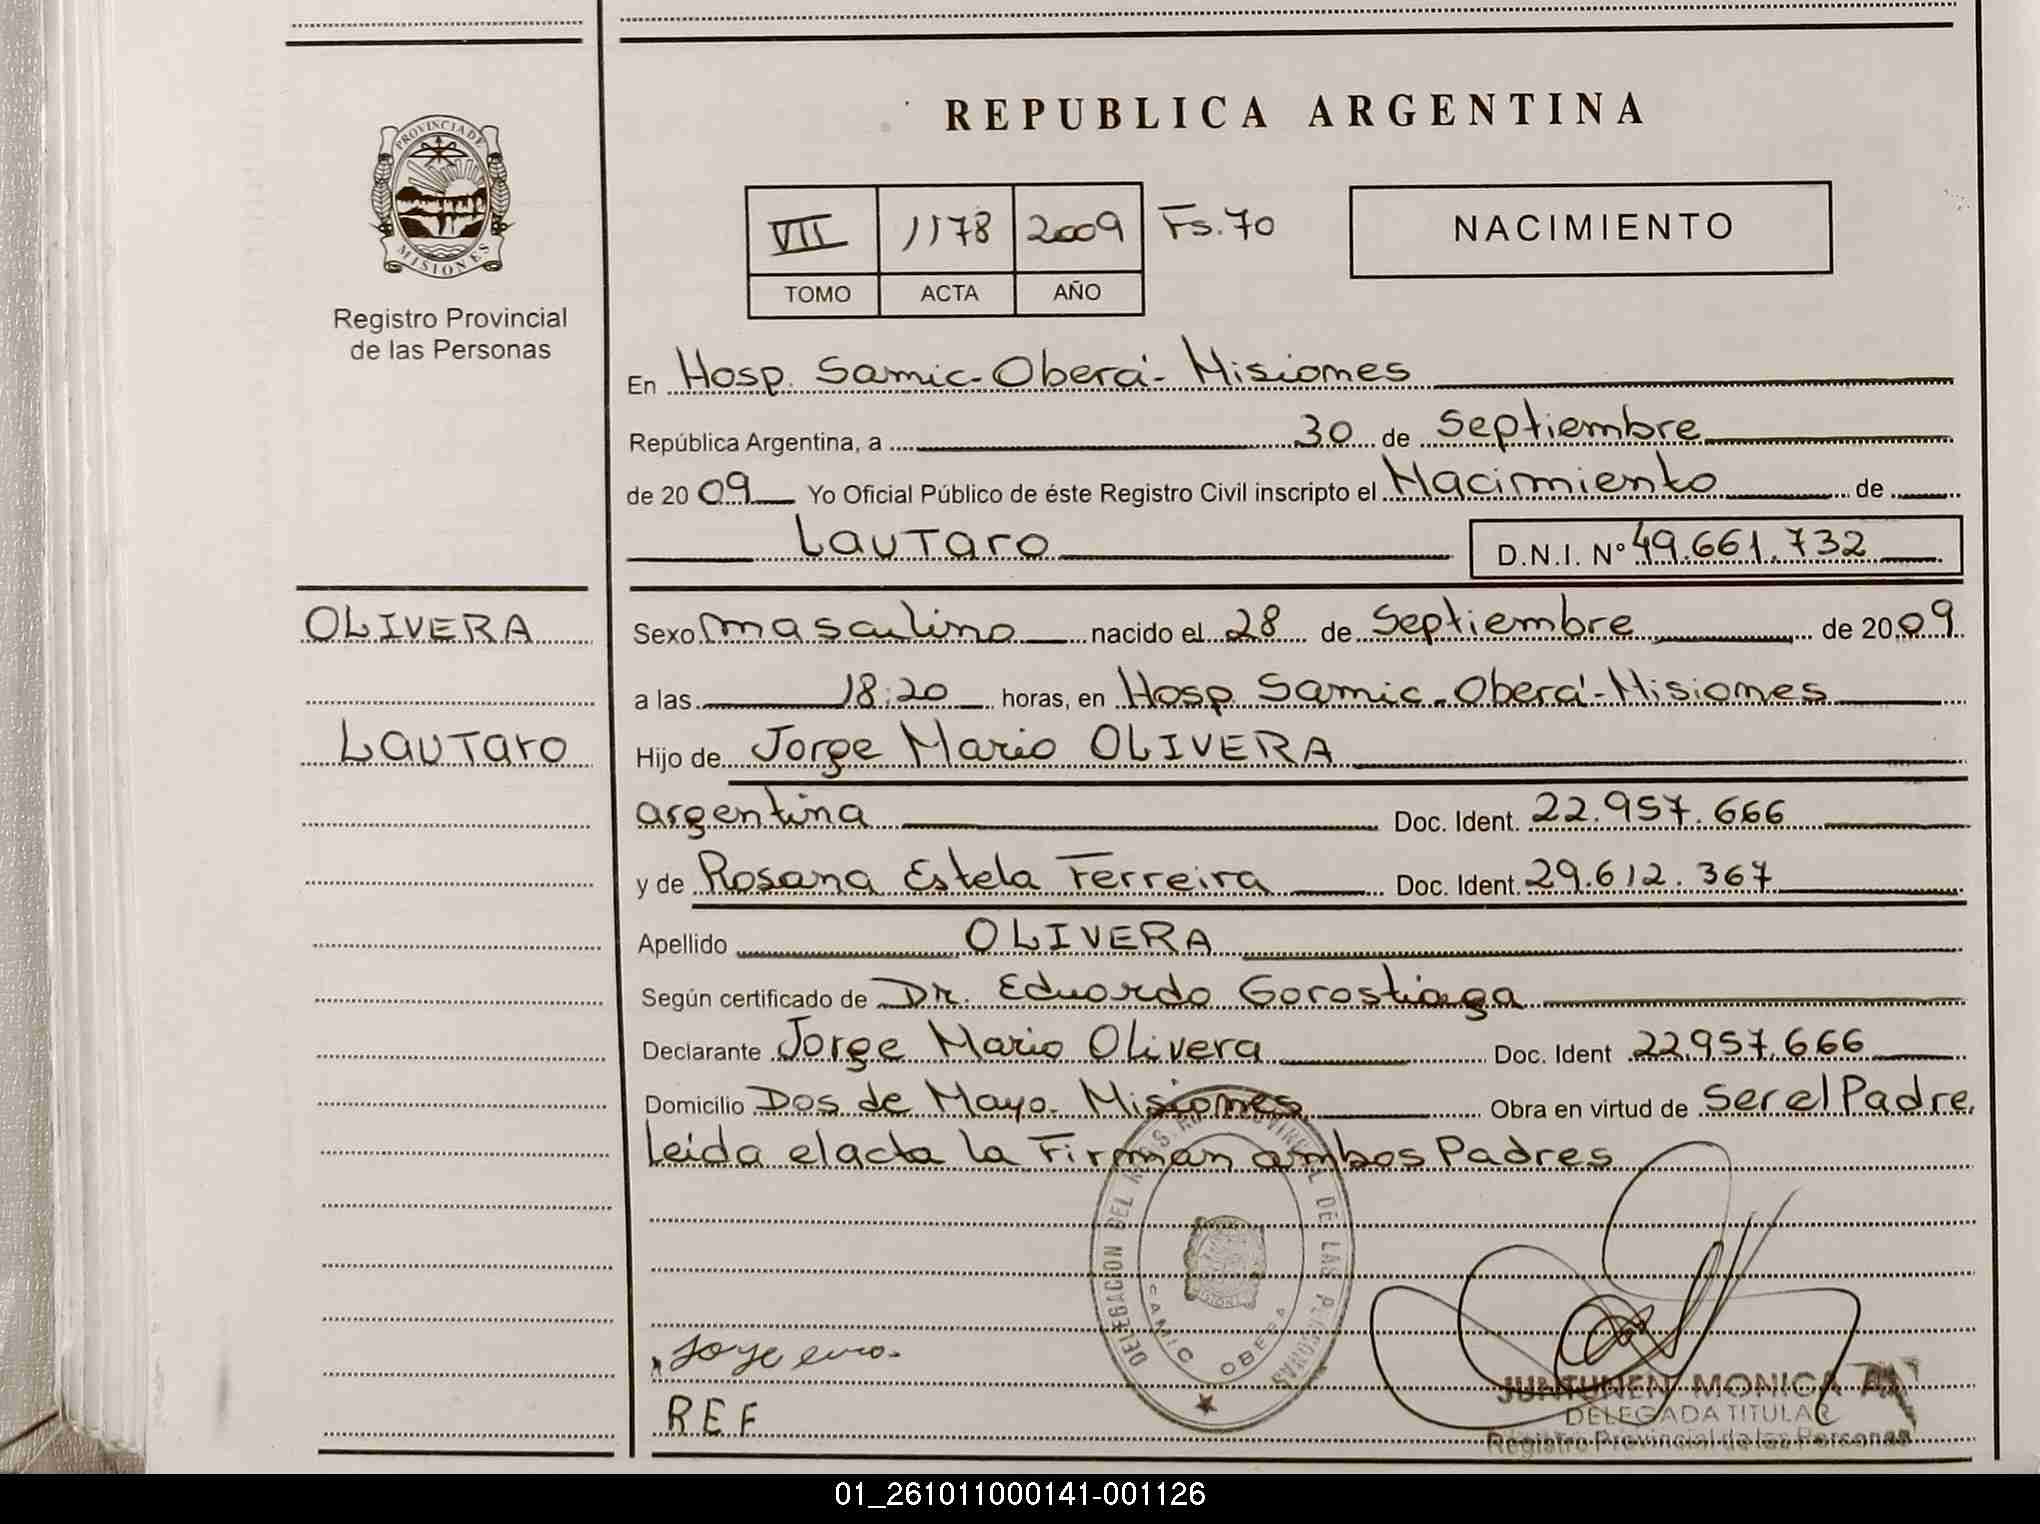 REPUBLICA ARGENTINA
PROVINCIA DE
MISIONES
Registro Provincial
de las Personas
VII 1178 2009 Fs. 70
TOMO ACTA AÑO
NACIMIENTO
En Hosp. Samic - Oberá - Misiones
República Argentina, a 30 de Septiembre
de 2009 Yo Oficial Público de éste Registro Civil inscripto el Nacimiento de
Lautaro D.N.I. Nº 49.661.732
OLIVERA
Lautaro
Sexo masculino nacido el 28 de Septiembre de 2009
a las 18:20 horas, en Hosp. Samic - Oberá - Misiones
Hijo de Jorge Mario OLIVERA
argentina Doc. Ident. 22.957.666
y de Rosana Estela Ferreira Doc. Ident. 29.612.367
Apellido OLIVERA
Según certificado de Dr. Eduardo Gorostiaga
Declarante Jorge Mario Olivera Doc. Ident 22.957.666
Domicilio Dos de Mayo - Misiones Obra en virtud de Ser el Padre,
Leída el acta la Firman ambos Padres
DELEGACION DEL PROVINCIAL DE LAS PERSONAS
SAMIC OBERA
REF
JUNTUNEN MONICA
DELEGADA TITULAR
Registro Provincial de las Personas
01_261011000141-001126